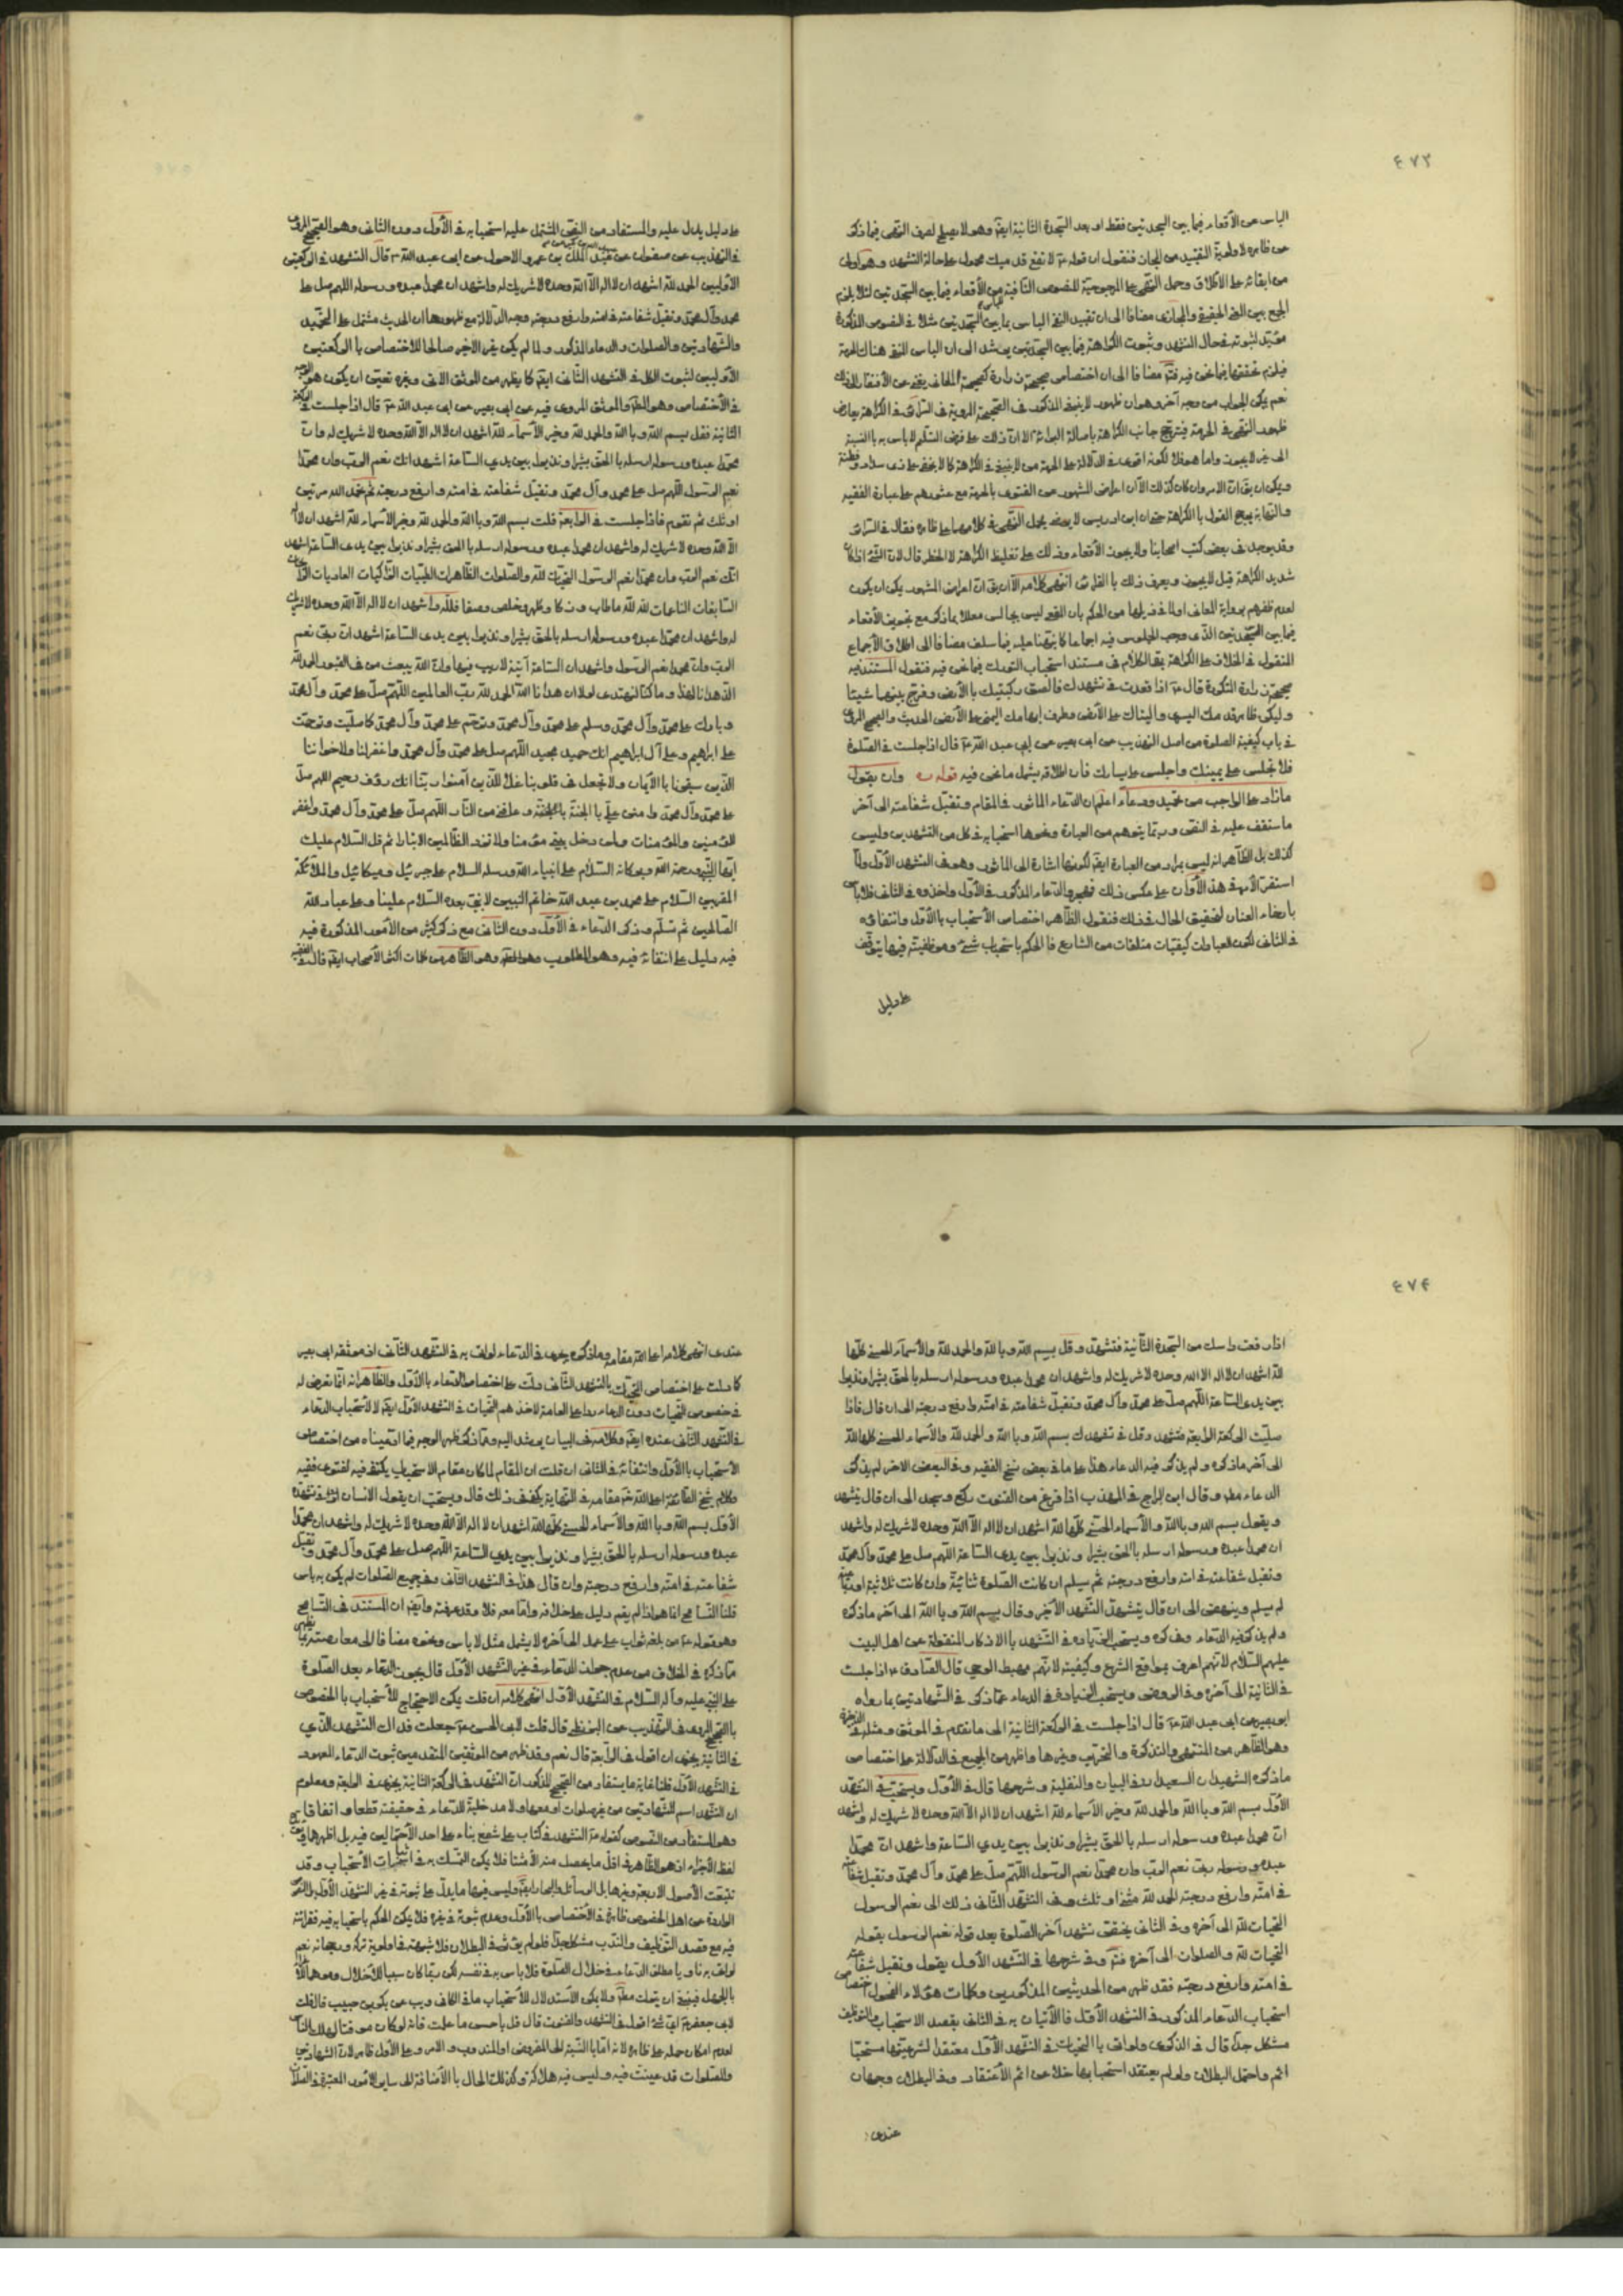 ٤٧٣
الباس عن الأقعاء فيما بين السجدتين فقط او بعد السجدة الثانية ايضا وهو لا يصلح لصرف النهى فيما ذكر
عن ظاهره لاولوية التقييد من المجاز فنقول ان قوله ع لا تقع قدميك محمول على حالة التشهد وهو اولى
من ابقائه على الاطلاق وحمل النهى على المرجوحية للنصوص النافية عن الأقعاء فيما بين السجدتين لئلا يلزم
الجمع بين المعنى الحقيقى والمجازى مضافا الى ان تقييد النفى الباس بما بين السجدتين مثلا فى النصوص المذكورة
نعم يمكن الجواب من وجه آخر وهو ان ظهور لا ينبغى المذكور فى الصحيحة المروية فى السرائر فى الكراهة يعارض
ظهور النهى فى الحرمة فيترجح جانب الكراهة باصالة البرائة الا ان ذلك على فرض التسليم لا باس به بالنسبة
ويمكن ان يقال ان الامر وان كان كذلك الا ان اعراض المشهور عن الفتوى بالحرمة مع عثورهم على عبارة الفقيه
والنهاية يرجح القول بالكراهة حتى ان ابن ادريس لا يرضى بحمل النهى فى كلامهما على ظاهره فقال فى السرائر
وقد يوجد فى بعض كتب اصحابنا ولا يجوز الأقعاء وذلك على تغليظ الكراهة لا الحظر قال لان الشئ اذا كان
شديد الكراهة قيل لا يجوز ويعرف ذلك بالقرائن انتهى كلامه الا ان يق ان اعراض المشهور يمكن ان يكون
فيما بين السجدتين الذى وجب الجلوس فيه اجماعا كما نبهنا عليه فيما سلف مضافا الى اطلاق الأجماع
المنقول فى الخلاف على الكراهة بقى الكلام فى مستند استحباب التورك فيما نحن فيه فنقول المستند فيه
صحيحة زرارة المذكورة قال ع اذا قعدت فى تشهدك فالصق ركبتيك بالأرض وفرج بينهما شيئا
وليكن ظاهر قدمك اليسرى واليتاك على الأرض وطرف ابهامك اليمنى على الأرض الحديث والصحيح المروى
فى باب كيفية الصلوة من اصل التهذيب عن ابى بصير عن ابى عبد الله ع قال اذا جلست فى الصلوة
فلا تجلس على يمينك واجلس على يسارك فان اطلاقه يشمل ما نحن فيه قوله ره وان يقول
ما زاد على الواجب من تحميد ودعاء اعلم ان الدعاء الماثور فى المقام وتقبل شفاعته الى آخر
ما ستقف عليه فى النص وربما يتوهم من العبارة ونحوها استحبابه فى كل من التشهدين وليس
كذلك بل الظاهر انه ليس بمراد من العبارة ايضا لكونها اشارة الى الماثور وهو فى التشهد الأول ولما
استقر الأمر فى هذا الأوان على عكس ذلك فهجروا الدعاء المذكور فى الأول واخذوه فى الثانى فلا باس
بارخاء العنان لتحقيق الحال فى ذلك فنقول الظاهر اختصاص الأستحباب بالأول وانتفائه
فى الثانى لكون العبادات كيفيات متلقات من الشارع فالحكم باستحباب شئ وموظفيته فيها يتوقف
على دليل
على دليل يدل عليه والمستفاد من النص المشتمل عليه استحبابه فى الأول دون الثانى وهو الصحيح المروى
فى التهذيب عن صفوان عن عبد الملك بن عمرو الاحول عن ابى عبد الله ع قال التشهد فى الركعتين
الأوليين الحمد لله اشهد ان لا اله الا الله وحده لا شريك له واشهد ان محمدا عبده ورسوله اللهم صل على
محمد وآل محمد وتقبل شفاعته فى امته وارفع درجته وجه الدلالة مع ظهورها ان الحديث مشتمل على التحميد
والشهادتين والصلوات والدعاء المذكور ولما لم يكن غير الاخير صالحا للاختصاص بالركعتين
الأوليين لثبوت الكل فى التشهد الثانى ايضا كما يظهر من الموثق الاتى وغيره تعين ان يكون هو الوجه
فى الأختصاص وهو المط والموثق المروى فيه عن ابى بصير عن ابى عبد الله ع قال اذا جلست فى الركعة
الثانية فقل بسم الله وبالله والحمد لله وخير الأسماء لله اشهد ان لا اله الا الله وحده لا شريك له وان
محمدا عبده ورسوله ارسله بالحق بشيرا ونذيرا بين يدى الساعة اشهد انك نعم الرب وان محمدا
نعم الرسول اللهم صل على محمد وآل محمد وتقبل شفاعته فى امته وارفع درجته ثم تحمد الله مرتين
او ثلث ثم تقوم فاذا جلست فى الرابعة قلت بسم الله وبالله والحمد لله وخير الأسماء لله اشهد ان لا اله
الا الله وحده لا شريك له واشهد ان محمدا عبده ورسوله ارسله بالحق بشيرا ونذيرا بين يدى الساعة اشهد
انك نعم الرب وان محمدا نعم الرسول التحيات لله والصلوات الطاهرات الطيبات الزاكيات الغاديات الرائحات
السابغات الناعمات لله ما طاب وزكا وطهر وخلص وصفا فلله واشهد ان لا اله الا الله وحده لا شريك
له واشهد ان محمدا عبده ورسوله ارسله بالحق بشيرا ونذيرا بين يدى الساعة اشهد ان ربى نعم
الرب وان محمدا نعم الرسول واشهد ان الساعة آتية لا ريب فيها وان الله يبعث من فى القبور الحمد لله
الذى هدانا لهذا وما كنا لنهتدى لولا ان هدانا الله الحمد لله رب العالمين اللهم صل على محمد وآل محمد
وبارك على محمد وآل محمد وسلم على محمد وآل محمد وترحم على محمد وآل محمد كما صليت وترحمت
على ابراهيم وعلى آل ابراهيم انك حميد مجيد اللهم صل على محمد وآل محمد واغفر لنا ولاخواننا
الذين سبقونا بالأيمان ولا تجعل فى قلوبنا غلا للذين آمنوا ربنا انك رؤف رحيم اللهم صل
على محمد وآل محمد وامنن على بالجنة وعافنى من النار اللهم صل على محمد وآل محمد واغفر
للمؤمنين والمؤمنات ولمن دخل بيتى مؤمنا ولا تزد الظالمين الا تبارا ثم قل السلام عليك
ايها النبى ورحمة الله وبركاته السلام على انبياء الله ورسله السلام على جبرئيل وميكائيل والملائكة
المقربين السلام على محمد بن عبد الله خاتم النبيين لا نبى بعده السلام علينا وعلى عباد الله
الصالحين ثم تسلم وذكر الدعاء فى الأول دون الثانى مع ذكر كثير من الأمور المذكورة فيه
فيه دليل على انتفائه فيه وهو المطلوب وهو الظاهر من كلمات اكثر الأصحاب ايضا قال فى الفقيه
٤٧٤
اذا رفعت راسك من السجدة الثانية فتشهد وقل بسم الله وبالله والحمد لله والأسماء الحسنى كلها
لله اشهد ان لا اله الا الله وحده لا شريك له واشهد ان محمدا عبده ورسوله ارسله بالحق بشيرا ونذيرا
بين يدى الساعة اللهم صل على محمد وآل محمد وتقبل شفاعته فى امته وارفع درجته الى ان قال فاذا
صليت الركعة الرابعة فتشهد وقل فى تشهدك بسم الله وبالله والحمد لله والأسماء الحسنى كلها لله
الى آخر ما ذكره ولم يذكر فيه الدعاء هذا على ما فى بعض نسخ الفقيه وفى البعض الاخر لم يذكر
الدعاء مط وقال ابن البراج فى المهذب اذا فرغ من القنوت ركع وسجد الى ان قال يتشهد
ويقول بسم الله وبالله والأسماء الحسنى كلها لله اشهد ان لا اله الا الله وحده لا شريك له واشهد
ان محمدا عبده ورسوله ارسله بالحق بشيرا ونذيرا بين يدى الساعة اللهم صل على محمد وآل محمد
وتقبل شفاعته فى امته وارفع درجته ثم يسلم ان كانت الصلوة ثنائية وان كانت ثلاثية او رباعية
لم يسلم وينهض الى ان قال يتشهد التشهد الآخر وقال بسم الله وبالله الى آخر ما ذكره
ولم يذكر فيه الدعاء وذكره ويستحب الزيادة فى التشهد بالاذكار المنقولة عن اهل البيت
عليهم السلام لانهم اعرف بمواقع الشرع وكيفيته لانهم مهبط الوحى قال الصادق ع اذا جلست
فى الثانية الى آخره وفى الروض ويستحب الزيادة فى الدعاء عما ذكر فى الشهادتين بما رواه
ابو بصير عن ابى عبد الله ع قال اذا جلست فى الركعة الثانية الى ما تقدم فى الموثق ومثله فى الذخيرة
وهو الظاهر من المنتهى والتذكرة والتحرير وغيرها واظهر من الجميع فى الدلالة على اختصاص
ما ذكره الشهيدان السعيدان فى البيان والنفلية وشرحها قال فى الأول ويستحب فى التشهد
الأول بسم الله وبالله والحمد لله وخير الأسماء لله اشهد ان لا اله الا الله وحده لا شريك له واشهد
ان محمدا عبده ورسوله ارسله بالحق بشيرا ونذيرا بين يدى الساعة واشهد ان محمدا
عبده ورسوله ربى نعم الرب وان محمدا نعم الرسول اللهم صل على محمد وآل محمد وتقبل شفاعته
فى امته وارفع درجته الحمد لله مثنى او ثلث وفى التشهد الثانى ذلك الى نعم الرسول
التحيات لله الى آخره وفى الثانى يختص تشهد آخر الصلوة بعد قوله نعم الرسول بقوله
التحيات لله والصلوات الى آخره ثم وفى شرحها فى التشهد الأول يقول وتقبل شفاعته
فى امته وارفع درجته فقد ظهر من الحديثين المذكورين وكلمات هؤلاء الفحول اختصاص
استحباب الدعاء المذكور فى التشهد الأول فالأتيان به فى الثانى بقصد الاستحباب والتوظيف
مشكل جدا قال فى الذكرى ولو اتى بالتحيات فى التشهد الأول معتقدا لشرعيتها مستحبا
اثم واحتمل البطلان ولو لم يعتقد استحبابها خلا عن اثم الأعتقاد وفى البطلان وجهان
عندى
عندى انتهى كلامه اعلى الله مقامه وما ذكره يجرى فى الدعاء لو اتى به فى التشهد الثانى اذ موثقة ابى بصير
كما دلت على اختصاص التحيات بالتشهد الثانى دلت على اختصاص الدعاء بالأول والظاهر انه انما تعرض له
فى خصوص التحيات دون الدعاء ردا على العامة لاخذهم التحيات فى التشهد الأول ايضا لا لأستحباب الدعاء
فى التشهد الثانى عنده ايضا وكلامه فى البيان يرشد اليه ومما ذكر ظهر الوجه فيما ادعيناه من اختصاص
الأستحباب بالأول وانتفائه فى الثانى ان قلت ان المقام لما كان مقام الاستحباب يكتفى فيه لفتوى فقيه
وكلام شيخ الطائفة اعلى الله مقامه فى النهاية يكفى فى ذلك قال ويستحب ان يقول الانسان فى تشهده
الأول بسم الله وبالله والأسماء الحسنى كلها لله اشهد ان لا اله الا الله وحده لا شريك له واشهد ان محمدا
عبده ورسوله ارسله بالحق بشيرا ونذيرا بين يدى الساعة اللهم صل على محمد وآل محمد وتقبل
شفاعته فى امته وارفع درجته وان قال هذا فى التشهد الثانى وفى جميع الصلوات لم يكن به باس
قلنا التسامح انما هو اذا لم يقم دليل على خلافه واما معه فلا وقد عرفته وايضا ان المستند فى التسامح
وهو قوله ع من بلغه ثواب على عمل الى آخره لا يشمل مثل لا باس ونحوه مضافا الى معارضته بما يظهر
مما ذكره فى الخلاف من عدم جواز الدعاء فى غير التشهد الأول قال يجوز الدعاء بعد الصلوة
على النبى عليه وآله السلام فى التشهد الأول انتهى كلامه ان قلت يمكن الاحتجاج للأستحباب بالخصوص
بالصحيح المروى فى التهذيب عن البزنطى قال قلت لابى الحسن ع جعلت فداك التشهد الذى
فى الثانية يجزى ان اقول فى الرابعة قال نعم وقد ظهر من الموثقين المتقدمين ثبوت الدعاء المعهود
فى التشهد الأول قلنا غاية ما يستفاد من الصحيح المذكور ان التشهد فى الركعة الثانية يجزى فى الرابعة ومعلوم
ان التشهد اسم للشهادتين من غير صلوات او معها ولا مدخلية للدعاء فى حقيقته قطعا واتفاقا
تتبعت الأصول الاربعة وغيرها بل الوسائل والبحار ايضا وليس فيها ما يدل على ثبوته فى غير التشهد الأول بل النصوص
الواردة عن اهل الخصوص ظاهرة فى الأختصاص بالأول وعدم ثبوته فى غيره فلا يمكن الحكم باستحبابه فيه فقرائته
فيه مع قصد التوظيف والندب مشكل جدا فلو لم يؤثر فى البطلان فلا شبهة فى اولوية تركه ورجحانه نعم
لو اتى به ناويا مطلق الدعاء فى خلال الصلوة فلا باس به فى نفسه لكن ربما كان سببا للأخلال
بالجهل فينبغى ان يترك مط ولا يمكن الأستدلال للأستحباب ما فى الكافى عن بكر بن حبيب قال قلت
لابى جعفر ع اى شئ اقول فى التشهد والقنوت قال قل باحسن ما علمت فانه لو كان موقتا لهلك الناس
لعدم امكان حمله على ظاهره لانه اما بالنسبة الى المفروض او المندوب والامر على الأول ظاهر لان الشهادتين
والصلوات قد عينت فيه وليس فيه هلاكه وكذلك الحال بالأضافة الى ساير الأمور المعتبرة فى الصلوة